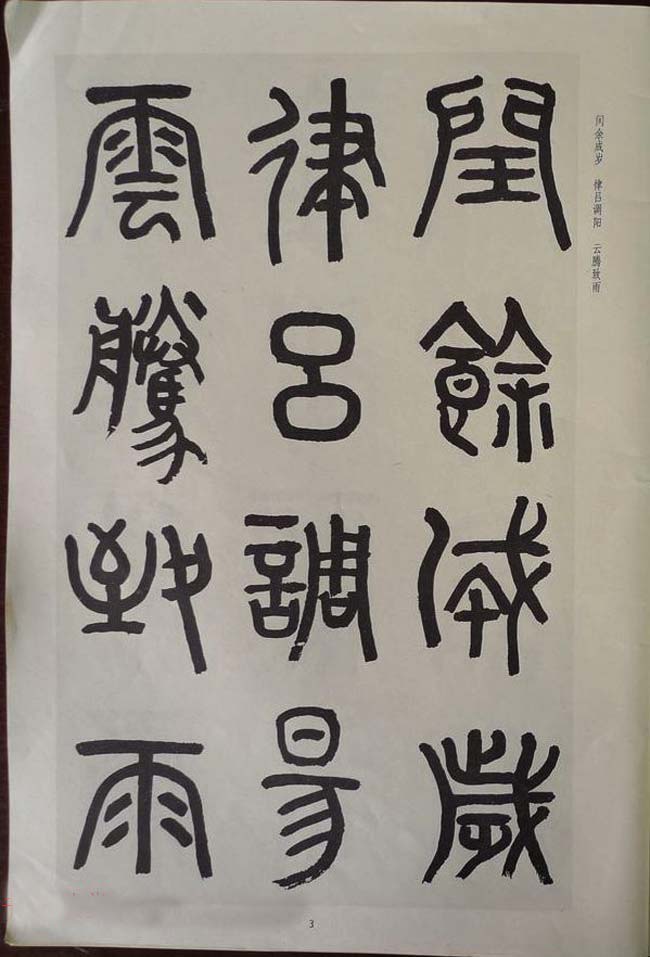 閏餘成歲
律呂調昜
雲騰致雨
闰余成岁 律吕调阳 云腾致雨
3